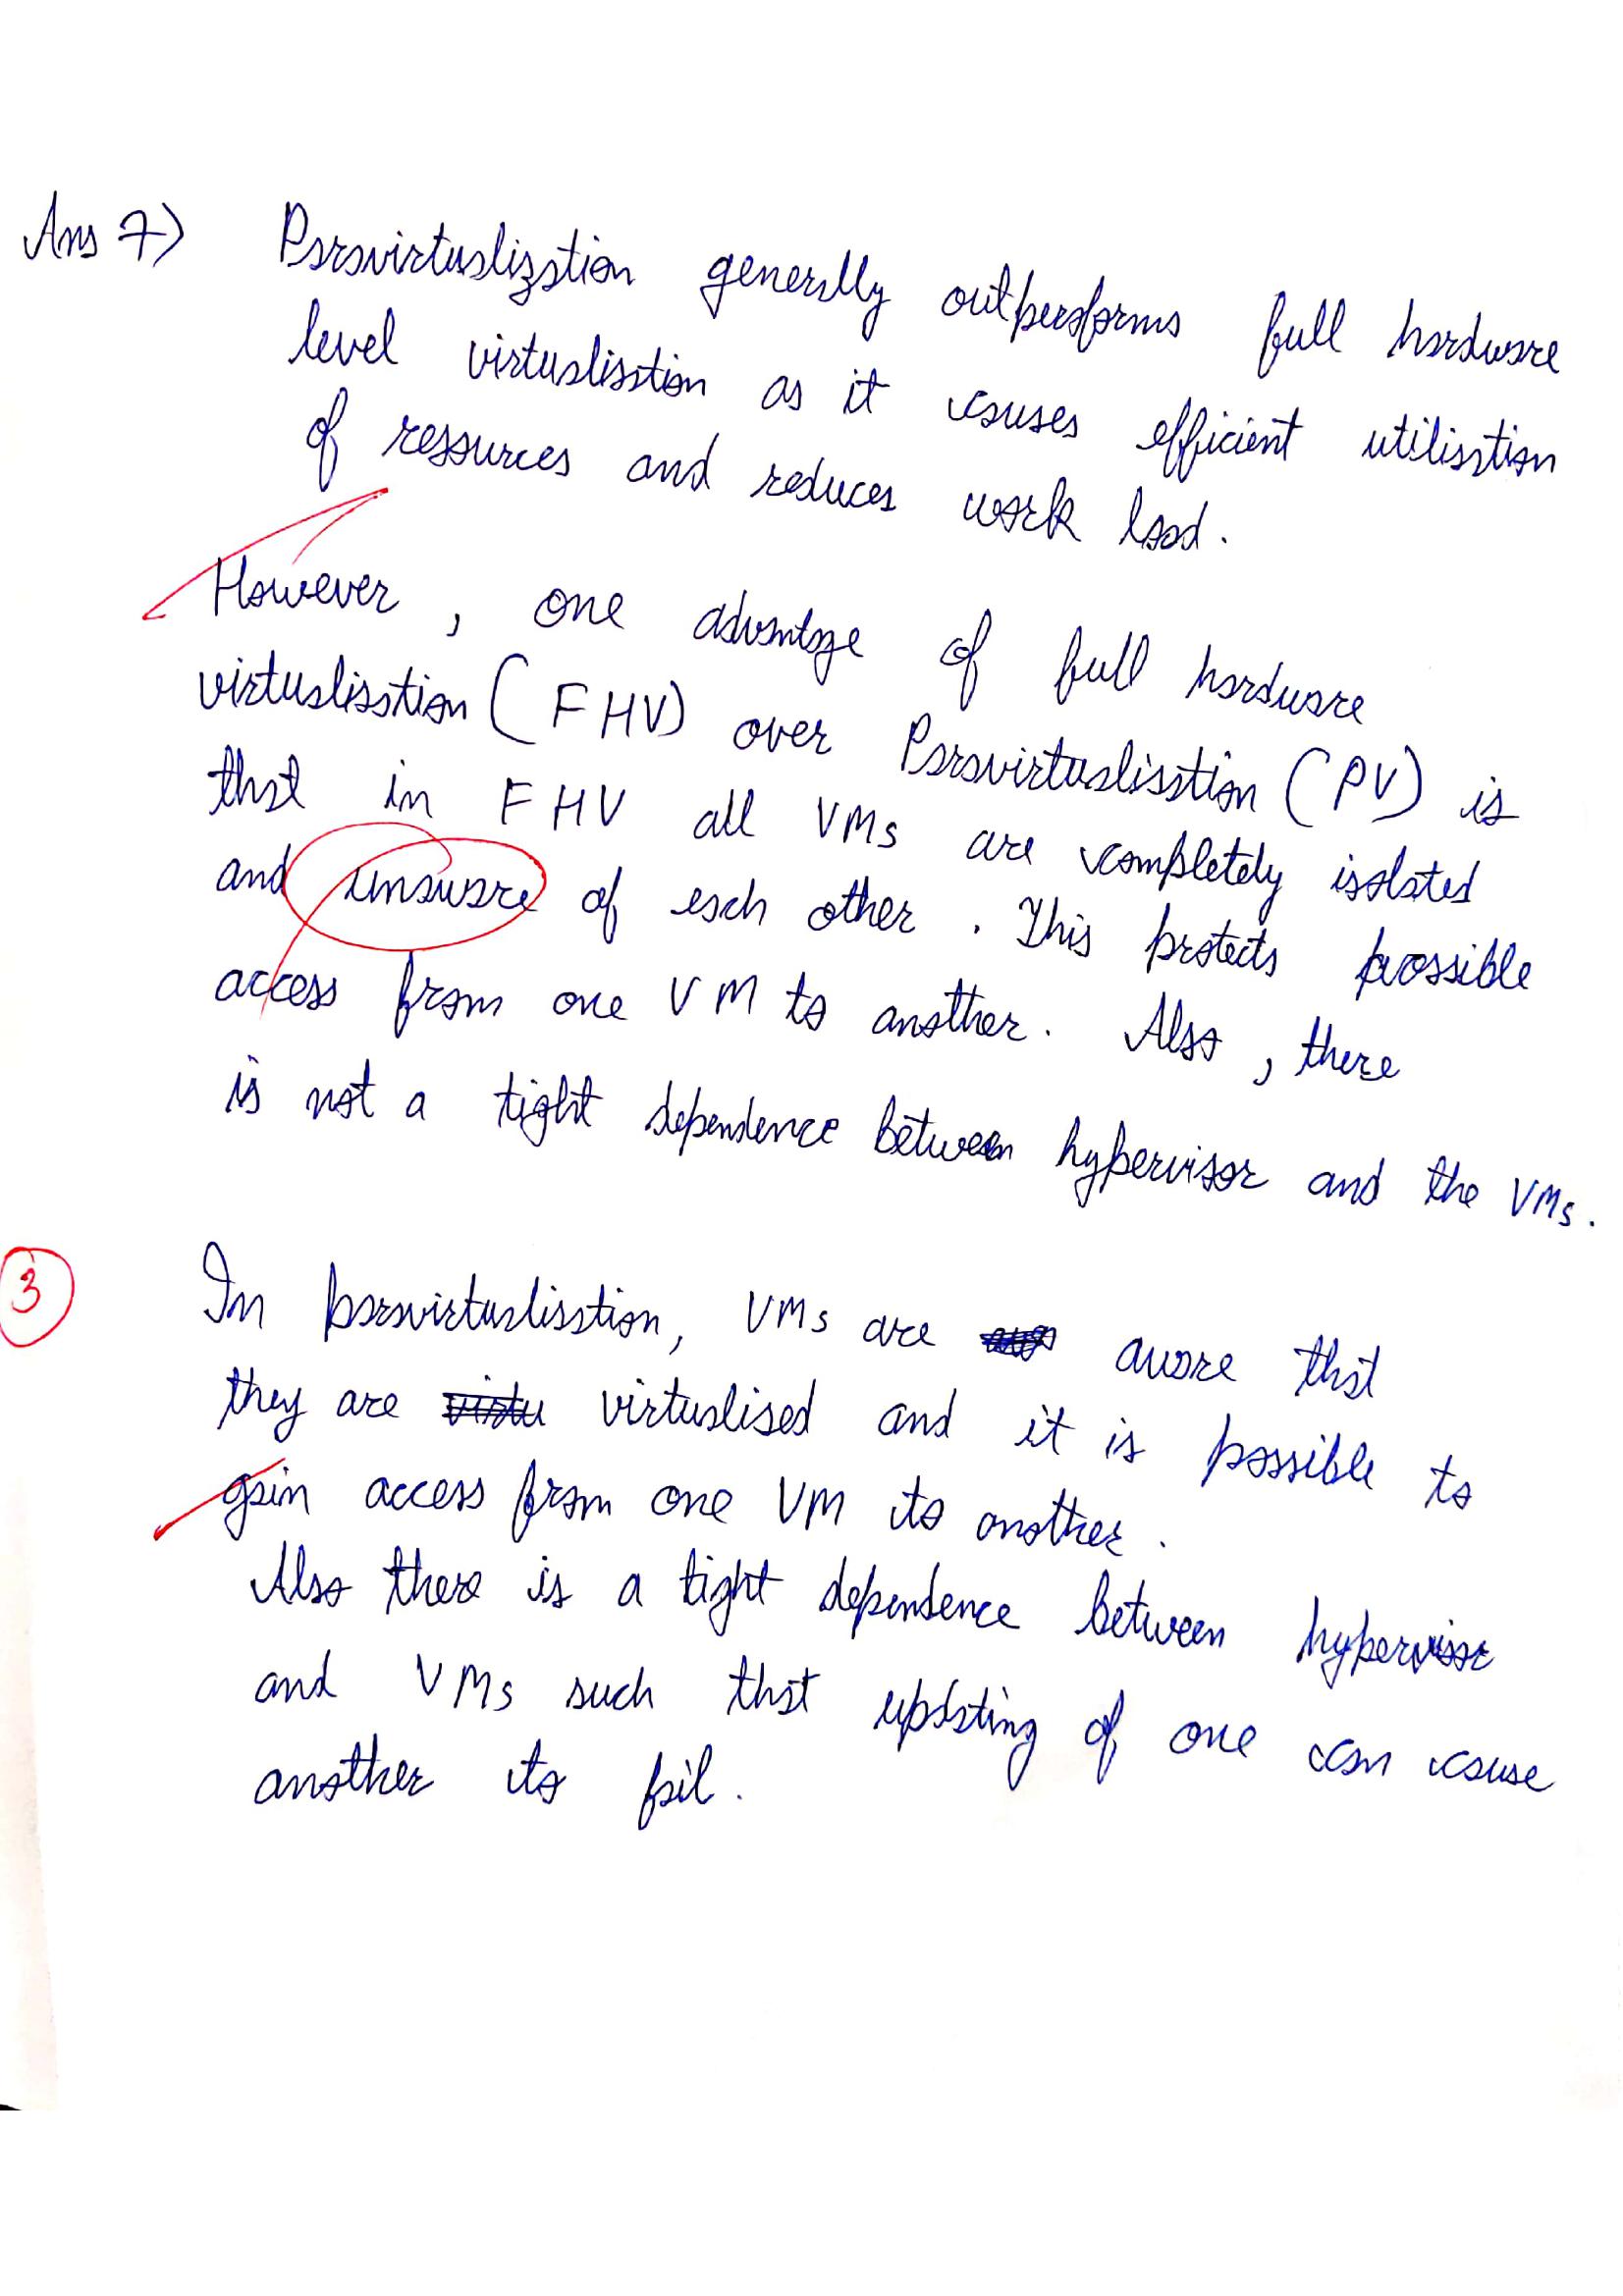 Ans 7) Paravirtualization generally outperforms full hardware
level virtualisation as it causes efficient utilisation
of resources and reduces work load.
However, one advantage of full hardware
virtualisation (FHV) over Paravirtualisation (PV) is
that in FHV all VMs are completely isolated
and unaware of each other. This protects possible
access from one VM to another. Also, there
is not a tight dependence between hypervisor and the VMs.
3
In paravirtualisation, VMs are aware that
they are virtualised and it is possible to
gain access from one VM to another.
Also there is a tight dependence between hypervisor
and VMs such that updating of one can cause
another to fail.